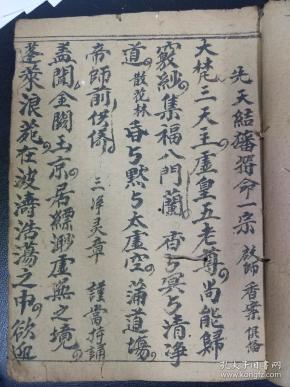 先天結旛符命一宗 啟師 香案 俱全
大梵三天主虛皇五老尊尚能歸
竅紗集福八門蘭 杳与冥与清淨
道 散花林 昏与默与太虛空蒲道場
帝師前供養 三洋灵章 謹當持誦
盖聞金闕玉京居縹渺虛無之境
蓬萊浪苑在波濤浩蕩之中欲